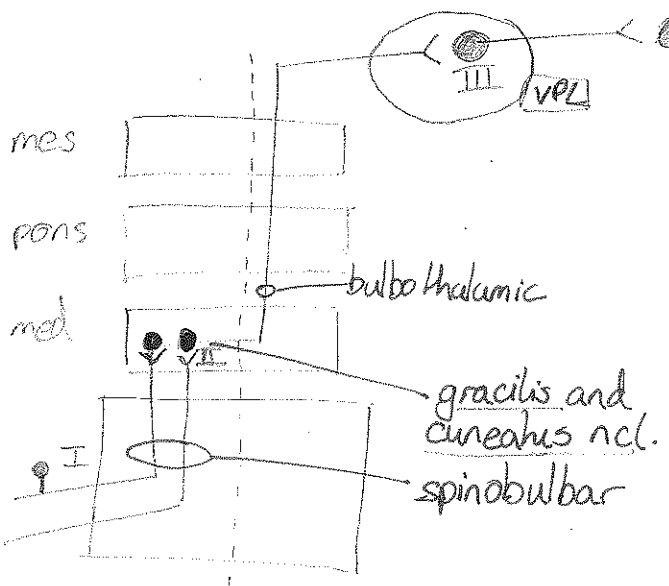 III
VPL
mes
pons
bulbothalamic
med
II
gracilis and
cuneatus ncl.
I
spinobulbar